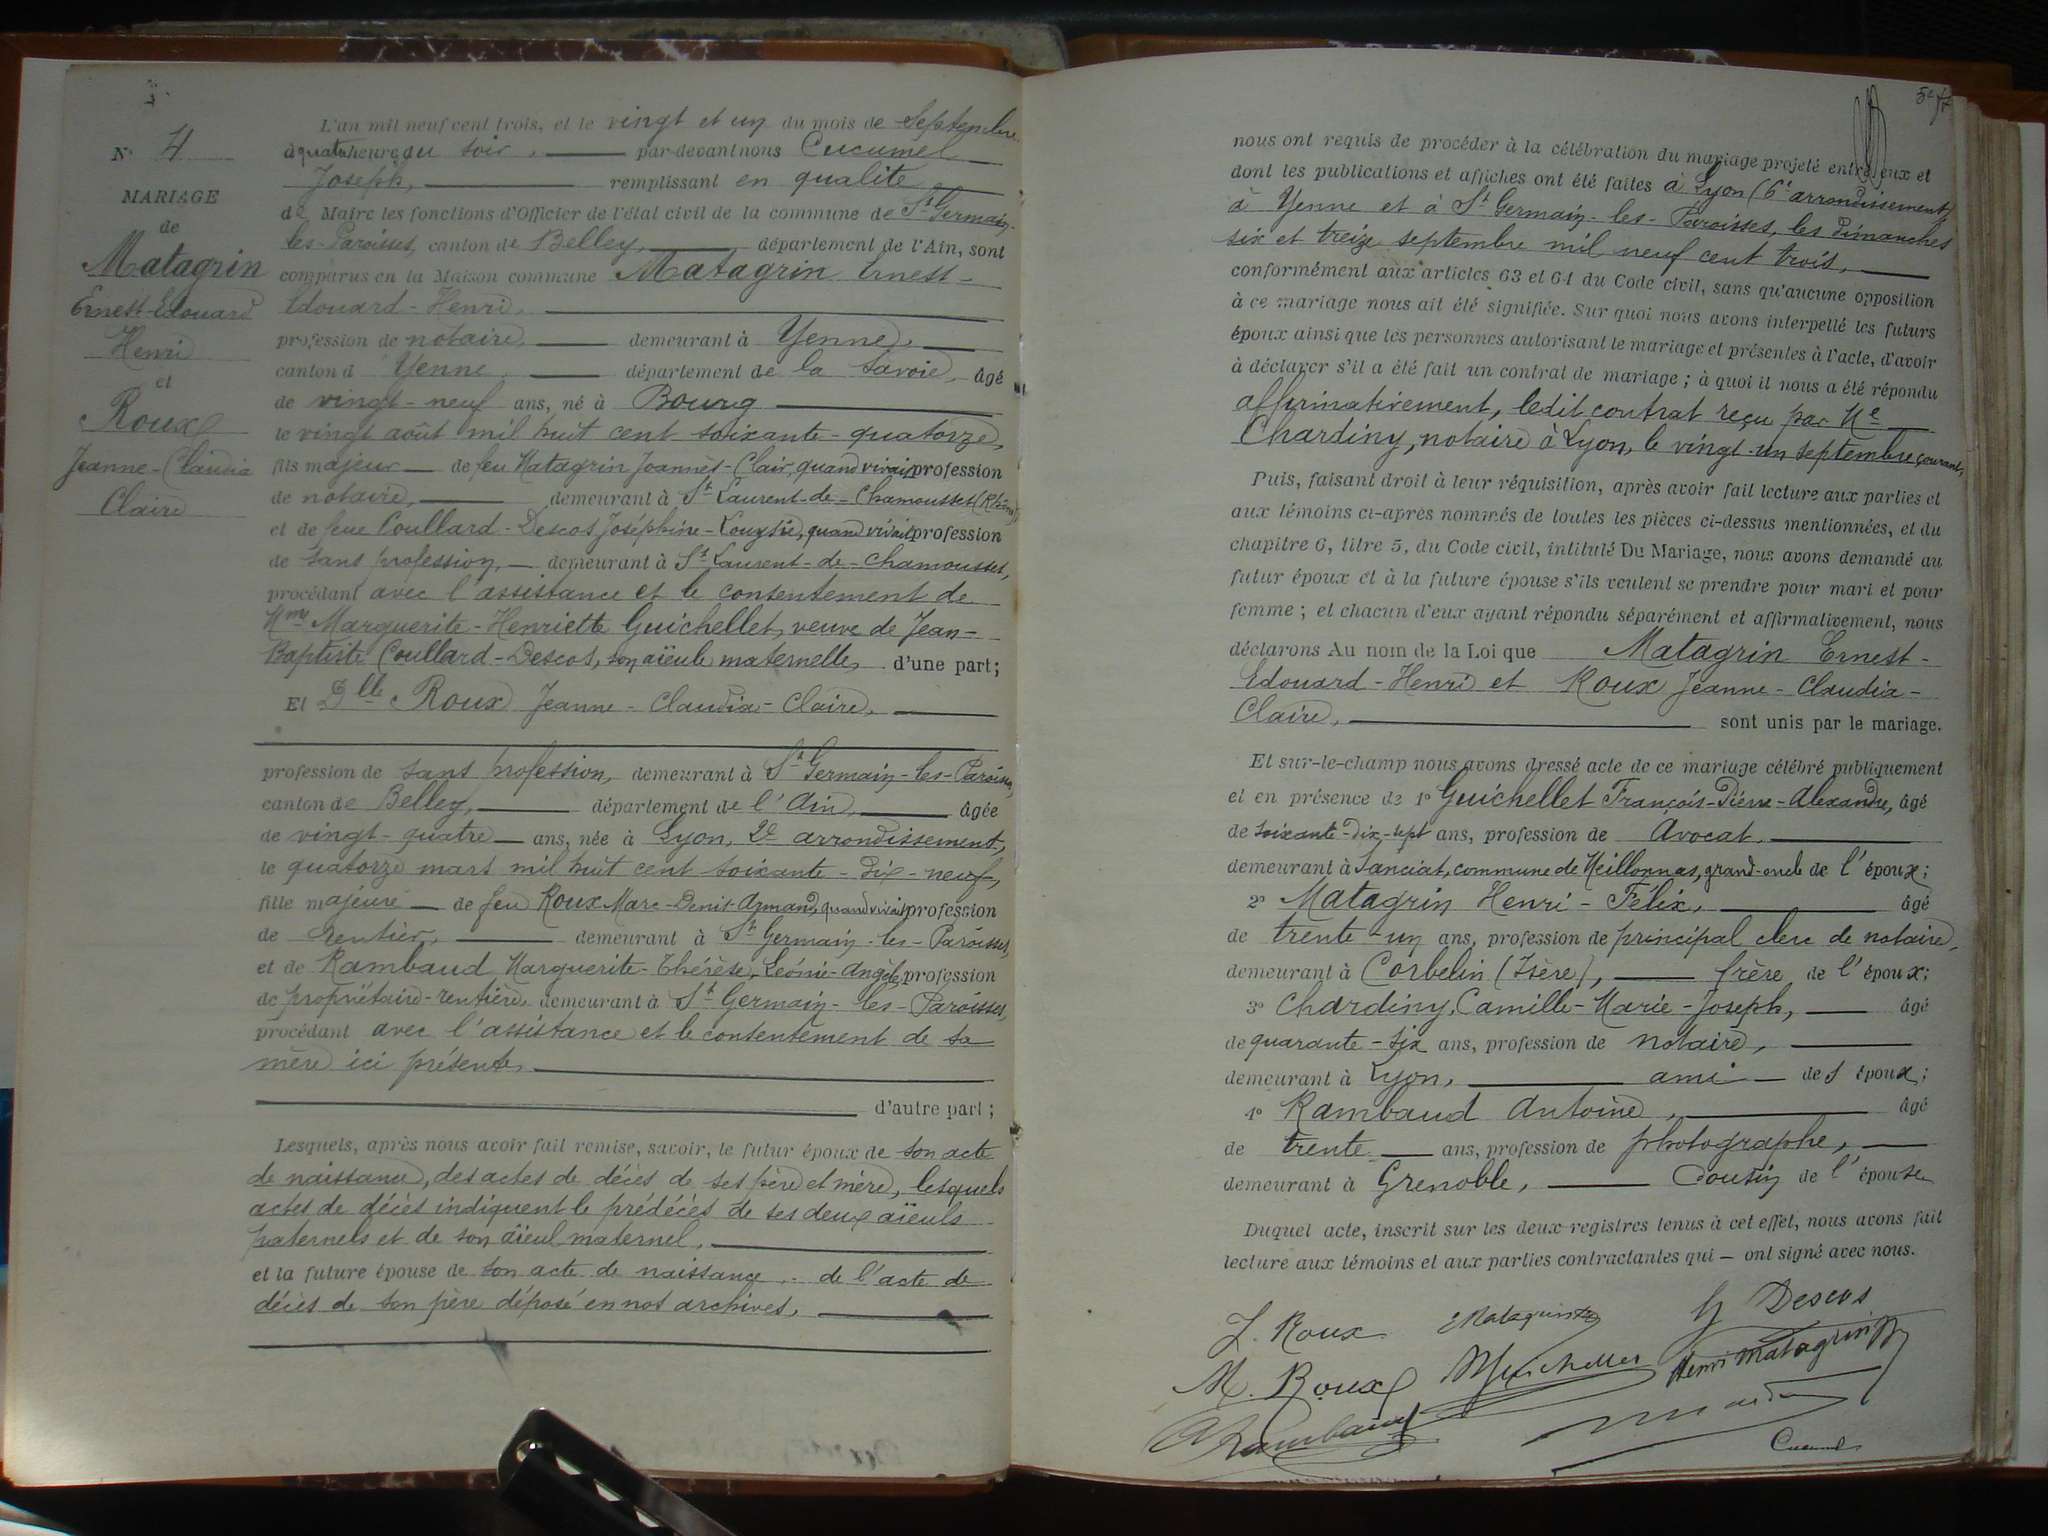 N° 4
MARIAGE
de
Matagrin
Ernest-Edouard
Henri
et
Roux
Jeanne-Claudia
Claire
L'an mil neuf cent trois, et le vingt et un du mois de Septembre
à quatre heures du soir, par-devant nous Cucumel
Joseph, remplissant en qualité
de Maire les fonctions d'Officier de l'état civil de la commune de St Germain-
les-Paroisses, canton de Belley, département de l'Ain, sont
comparus en la Maison commune Matagrin Ernest-
Edouard-Henri,
profession de notaire, demeurant à Yenne,
canton d Yenne, département de la Savoie, âgé
de vingt-neuf ans, né à Bourg
le vingt août mil huit cent soixante-quatorze,
fils majeur de feu Matagrin Joannès-Clair, quand vivait profession
de notaire, demeurant à St Laurent-de-Chamousset (Rhône),
et de feue Coullard-Descos Joséphine-Louysie, quand vivait profession
de sans profession, demeurant à St Laurent-de-Chamousset,
procédant avec l'assistance et le consentement de
Mme Marguerite-Henriette Guichellet, veuve de Jean-
Baptiste Coullard-Descos, son aïeule maternelle, d'une part;
Et Dlle Roux Jeanne-Claudia-Claire,
profession de sans profession, demeurant à St Germain-les-Paroisses,
canton de Belley, département de l'Ain, âgée
de vingt-quatre ans, née à Lyon, 2e arrondissement,
le quatorze mars mil huit cent soixante-dix-neuf,
fille majeure de feu Roux Marc-Denis-Armand, quand vivait profession
de rentier, demeurant à St Germain-les-Paroisses,
et de Rambaud Marguerite-Thérèse, Léonie-Angèle, profession
de propriétaire-rentière, demeurant à St Germain-les-Paroisses,
procédant avec l'assistance et le consentement de sa
mère ici présente,
d'autre part;
Lesquels, après nous avoir fait remise, savoir, le futur époux de son acte
de naissance, des actes de décès de ses père et mère, lesquels
actes de décès indiquent le prédécès de ses deux aïeuls
paternels et de son aïeul maternel,
et la future épouse de son acte de naissance, de l'acte de
décès de son père déposé en nos archives,
nous ont requis de procéder à la célébration du mariage projeté entre eux et
dont les publications et affiches ont été faites à Lyon (6e arrondissement),
à Yenne et à St Germain-les-Paroisses, les dimanches
six et treize septembre mil neuf cent trois,
conformément aux articles 63 et 64 du Code civil, sans qu'aucune opposition
à ce mariage nous ait été signifiée. Sur quoi nous avons interpellé les futurs
époux ainsi que les personnes autorisant le mariage et présentes à l'acte, d'avoir
à déclarer s'il a été fait un contrat de mariage; à quoi il nous a été répondu
affirmativement, ledit contrat reçu par Me
Chardiny, notaire à Lyon, le vingt-un septembre courant,
Puis, faisant droit à leur réquisition, après avoir fait lecture aux parties et
aux témoins ci-après nommés de toutes les pièces ci-dessus mentionnées, et du
chapitre 6, titre 5, du Code civil, intitulé Du Mariage, nous avons demandé au
futur époux et à la future épouse s'ils veulent se prendre pour mari et pour
femme; et chacun d'eux ayant répondu séparément et affirmativement, nous
déclarons Au nom de la Loi que Matagrin Ernest-
Edouard-Henri et Roux Jeanne-Claudia-
Claire, sont unis par le mariage.
Et sur-le-champ nous avons dressé acte de ce mariage célébré publiquement
et en présence de 1° Guichellet François-Pierre-Alexandre, âgé
de soixante-dix-sept ans, profession de Avocat,
demeurant à Sanciat, commune de Meillonnas, grand-oncle de l'époux;
2° Matagrin Henri-Félix, âgé
de trente-un ans, profession de principal clerc de notaire,
demeurant à Corbelin (Isère), frère de l'époux;
3° Chardiny, Camille-Marie-Joseph, âgé
de quarante-six ans, profession de notaire,
demeurant à Lyon, ami des époux;
4° Rambaud Antoine, âgé
de trente ans, profession de photographe,
demeurant à Grenoble, cousin de l'épouse
Duquel acte, inscrit sur les deux registres tenus à cet effet, nous avons fait
lecture aux témoins et aux parties contractantes qui — ont signé avec nous.
J. Roux E Matagrin Descos
M. Roux Guichellet Henri Matagrin
A Rambaud
Cucumel